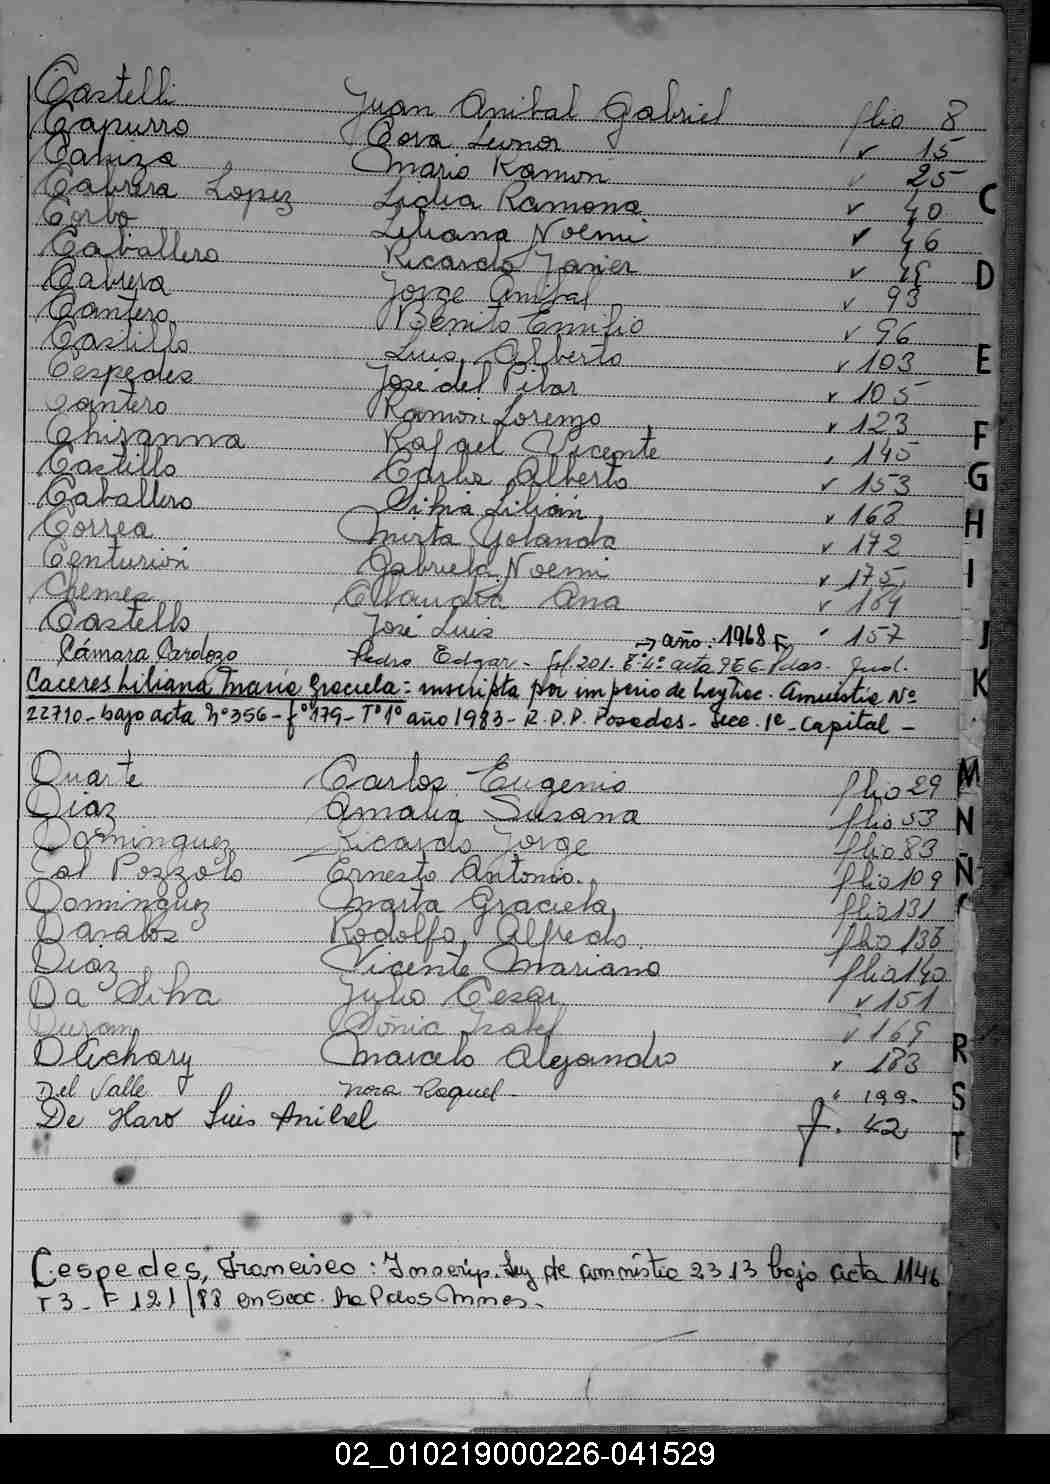 Castelli Juan Anibal Gabriel flio 8
Capurro Cora Leonor v 15
Cañiza Mario Ramon v 25
Cabrera Lopez Lidia Ramona v 40
Corbo Liliana Noemi v 46
Caballero Ricardo Javier v
Cabrera Jorge Anibal v 93
Cantero Benito Emilio v 96
Castillo Luis Alberto v 103
Cespedes José del Pilar v 105
Cantero Ramon Lorenzo v 123
Rafael Vicente 145
Castillo Carlos Alberto v 153
Caballero Silvia Lilian v 163
Correa Mirta Yolanda v 172
Centurion Gabriela Noemi v 175
Chemes Claudia Ana v 184
Castello José Luis " 157
→ año: 1968
Cámara Cardozo Pedro Edgar - fol. 201. Tº 4º acta 966 - Pdas. Jud.
Caceres Liliana Maria Graciela: inscripta por imperio de Ley Nac. Amnistia Nº
22710 - bajo acta Nº 356 - fº 179 - Tº 1º año 1983 - R.D.P. Posadas - Secc. 1ª - Capital -
Duarte Carlos Eugenio flio 29
Diaz Amalia Susana flio 53
Dominguez Ricardo Jorge flio 83
Dal Pozzolo Ernesto Antonio. flio 109
Dominguez Marta Graciela flio 131
Davalos Rodolfo Alfredo. flio 136
Diaz Vicente Mariano flio 140
Da Silva Julio Cesar v 151
Duran Sonia Isabel v 169
Marcelo Alejandro v 183
Del Valle Nora Raquel - " 199-
De Haro Luis Anibal f. 42
Cespedes, Francisco: Inscrip. Ley de amnistia 2313 bajo acta 1146
T3 - F 121/88 en Secc. 1ra Pdas Mnes.
C
D
E
F
G
H
I
J
K
M
N
Ñ
R
S
T
02_010219000226-041529